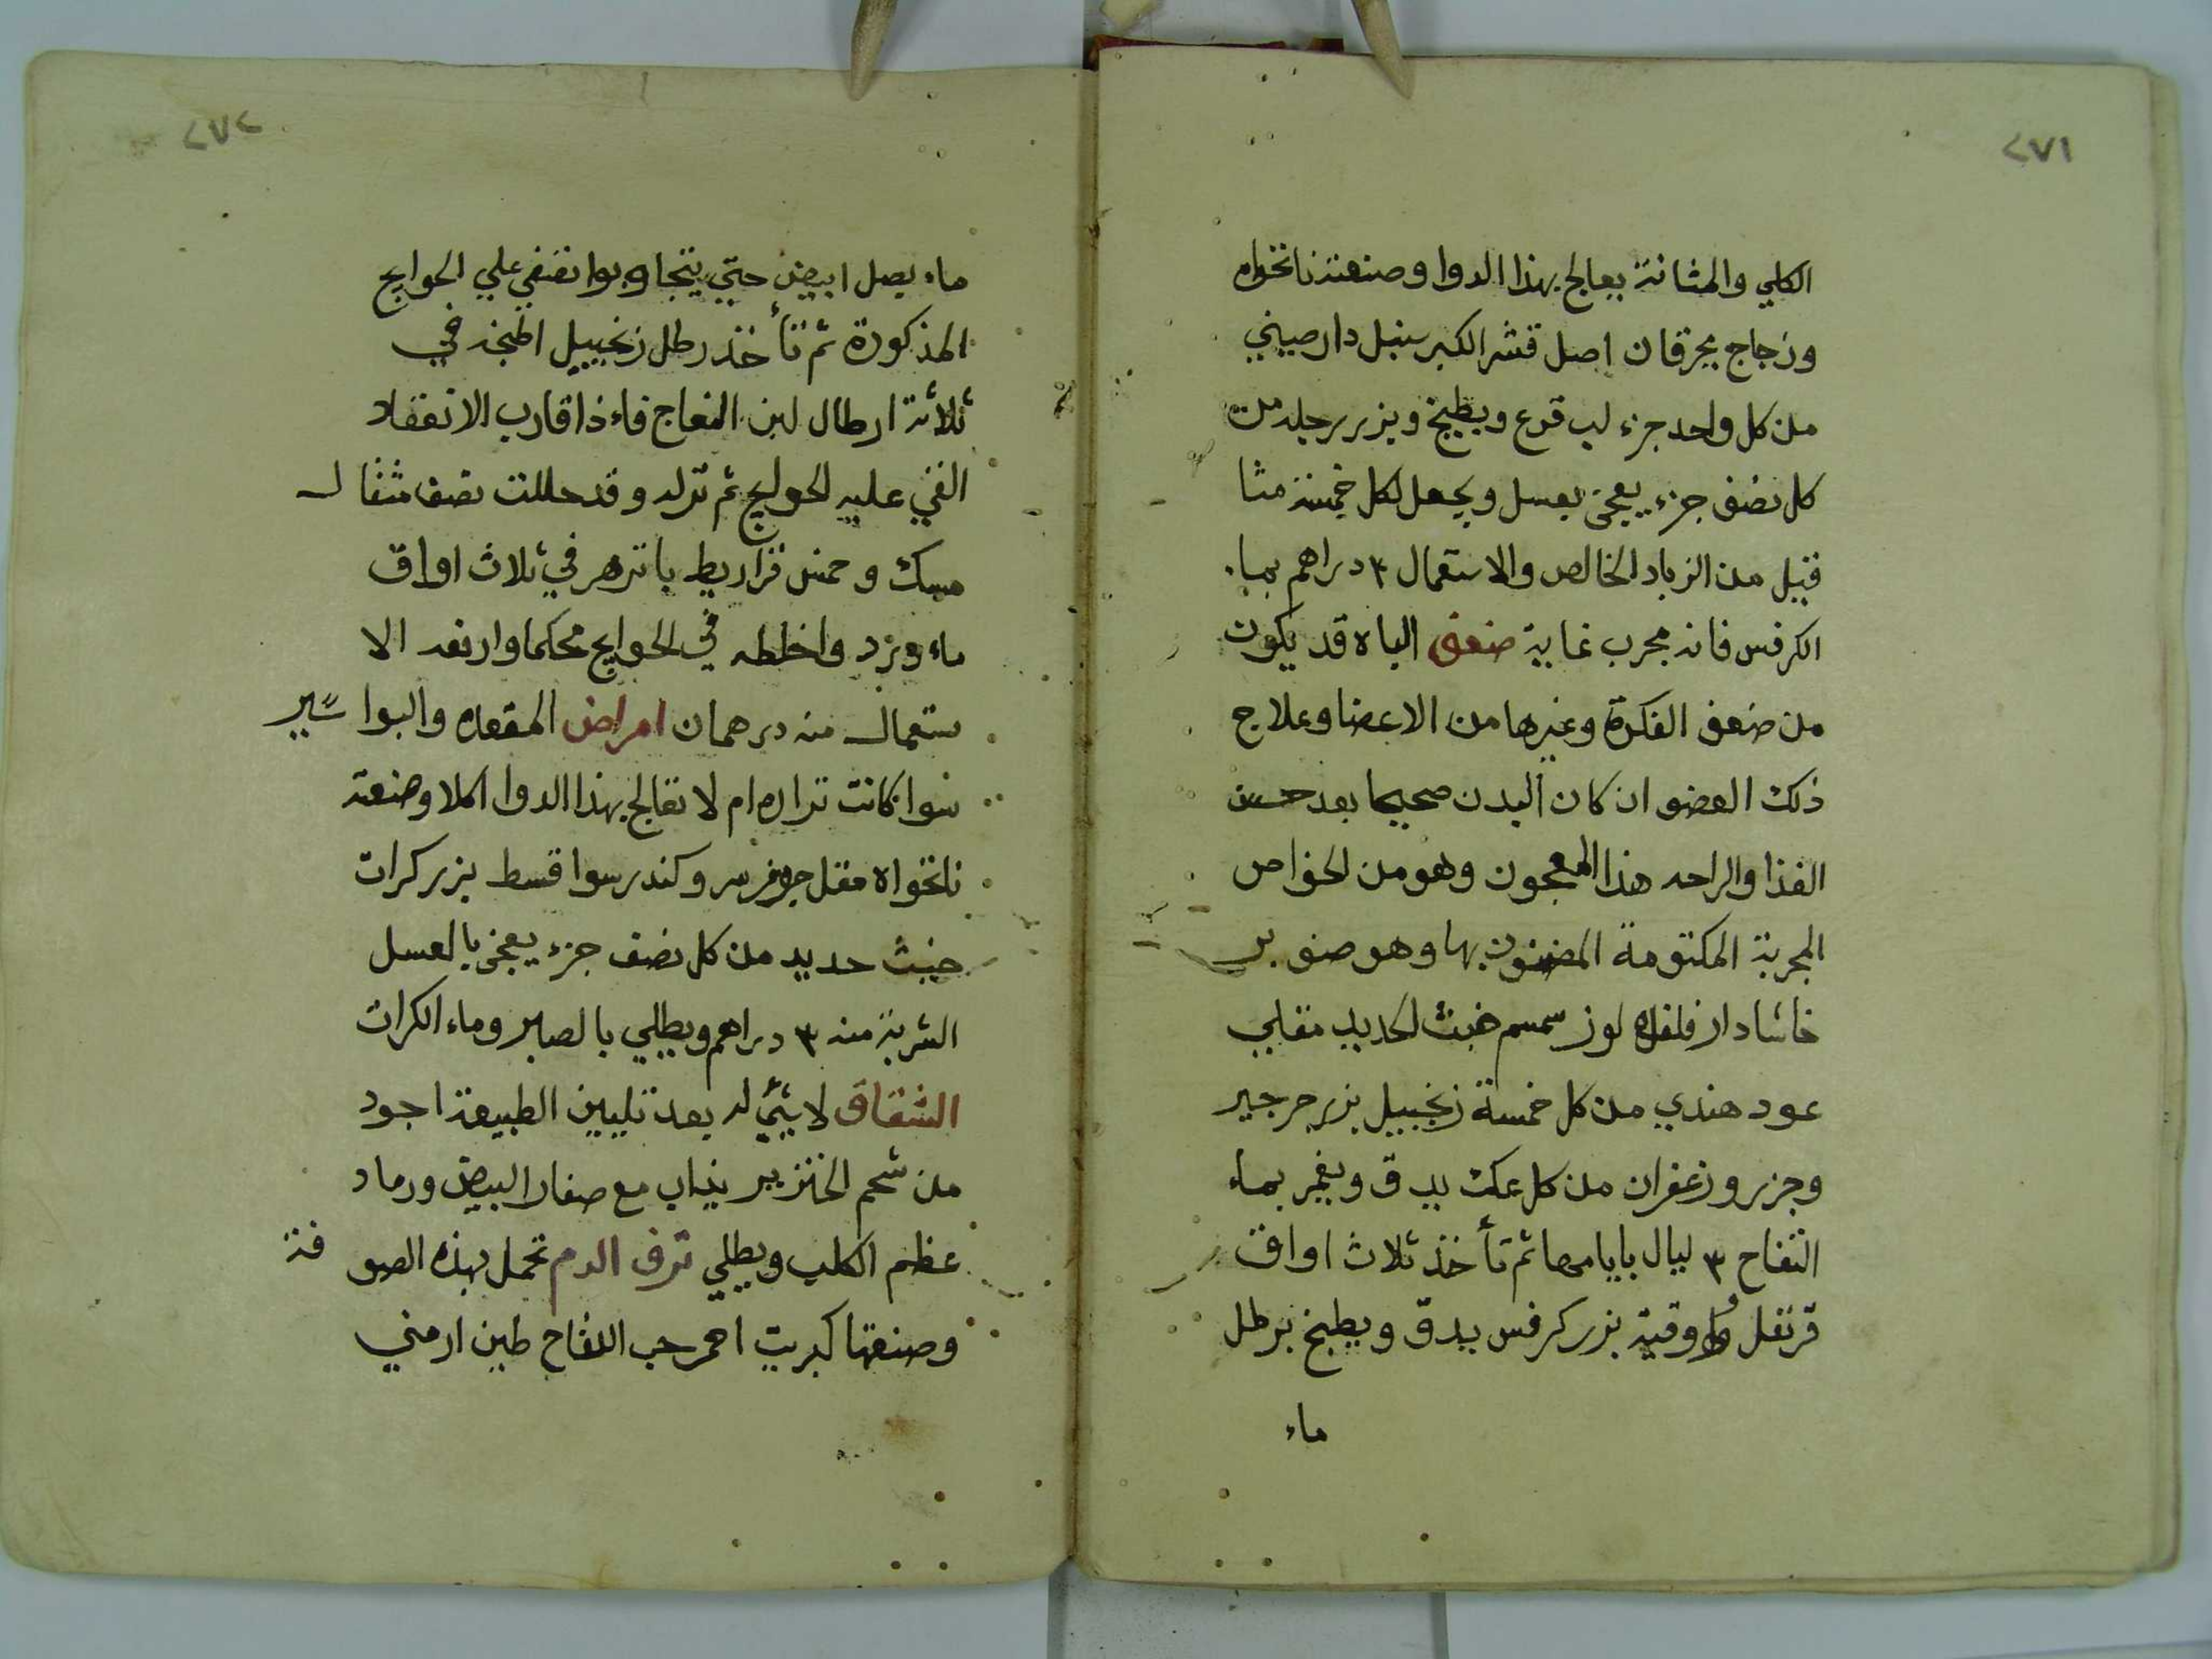 ٢٧١
الكلي والمثانة يعالج بهذا الدوا وصنعته نانخواه
وزجاج محرقان اصل قشر الكبر سنبل دارصيني
من كل واحد جزء لب قرع وبطيخ وبزر رجله من
كل نصف جزء يعجن بعسل ويجعل لكل خمسة مثا
قيل من الزباد الخالص والاستعمال ٣ دراهم بماء
الكرفس فانه مجرب غاية ضعف الباه قد يكون
من ضعف الفكرة وغيرها من الاعضا وعلاج
ذلك العضو ان كان البدن صحيحا بعد حسن
الغذا والراحه هذا المعجون وهو من الخواص
المجربة المكتومة المضنون بها وهو صنوبر
خاشا دار فلفل لوز سمسم خبث الحديد مقلي
عود هندي من كل خمسة زنجبيل بزر جرجير
وجزر وزعفران من كل عكث يدق ويغمر بماء
التفاح ٣ ليال بايامها ثم تأخذ ثلاث اواق
قرنفل واوقية بزر كرفس يدق ويطبخ برطل
ماء
٢٧٢
ماء بصل ابيض حتي يتجاوبوا تضفي علي الحوايج
المذكورة ثم تأخذ رطل زنجبيل اطبخه في
ثلاثة ارطال لبن النعاج فاءذا قارب الانعقاد
القي عليه الحوايج ثم تزله وقد حللت نصف مثقال
مسك وخمس قراريط باتزهر في ثلاث اواق
ماء ورد واخلطه في الحوايج محكما وارفعه الا
ستعمال منه درهمان امراض المقعده والبواسير
سوا كانت تراره ام لا تعالج بهذا الدوا اكلا وصنعته
نانخواه مقل وكندر سوا قسط بزر كرات
خبث حديد من كل نصف جزء يعجن بالعسل
الشربة منه ٣ دراهم ويطلي بالصابر وماء الكرات
الشقاق لا شئ له بعد تليين الطبيعة اجود
من شحم الخنزير يذاب مع صفار البيض ورماد
عظم الكلب ويطلي نزف الدم تحمل بهذه الصوفة
وصنعتها كبريت احمر حب اللفاح طين ارمني